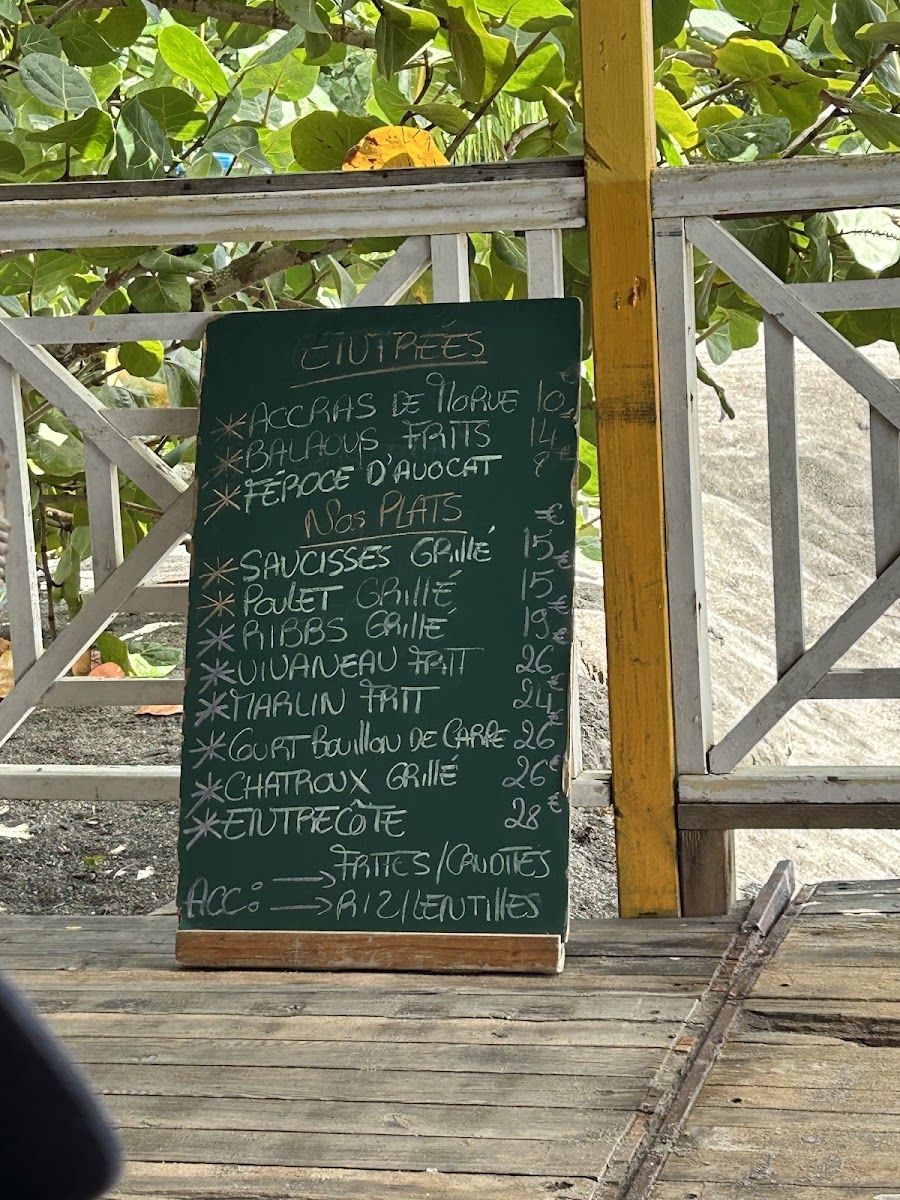 ENTRÉES
* ACCRAS DE MORUE 10€
* BALAOUS FRITS 14€
* FÉROCE D'AVOCAT 8€
NOS PLATS
* SAUCISSES GRILLÉ 15€
* POULET GRILLÉ 15€
* RIBBS GRILLÉ 19€
* VIVANEAU FRIT 26€
* MARLIN FRIT 24€
* COURT BOUILLON DE CARPE 26€
* CHATROUX GRILLÉ 26€
* ENTRECÔTE 28€
→ FRITES/CRUDITÉS
ACC: → RIZ/LENTILLES